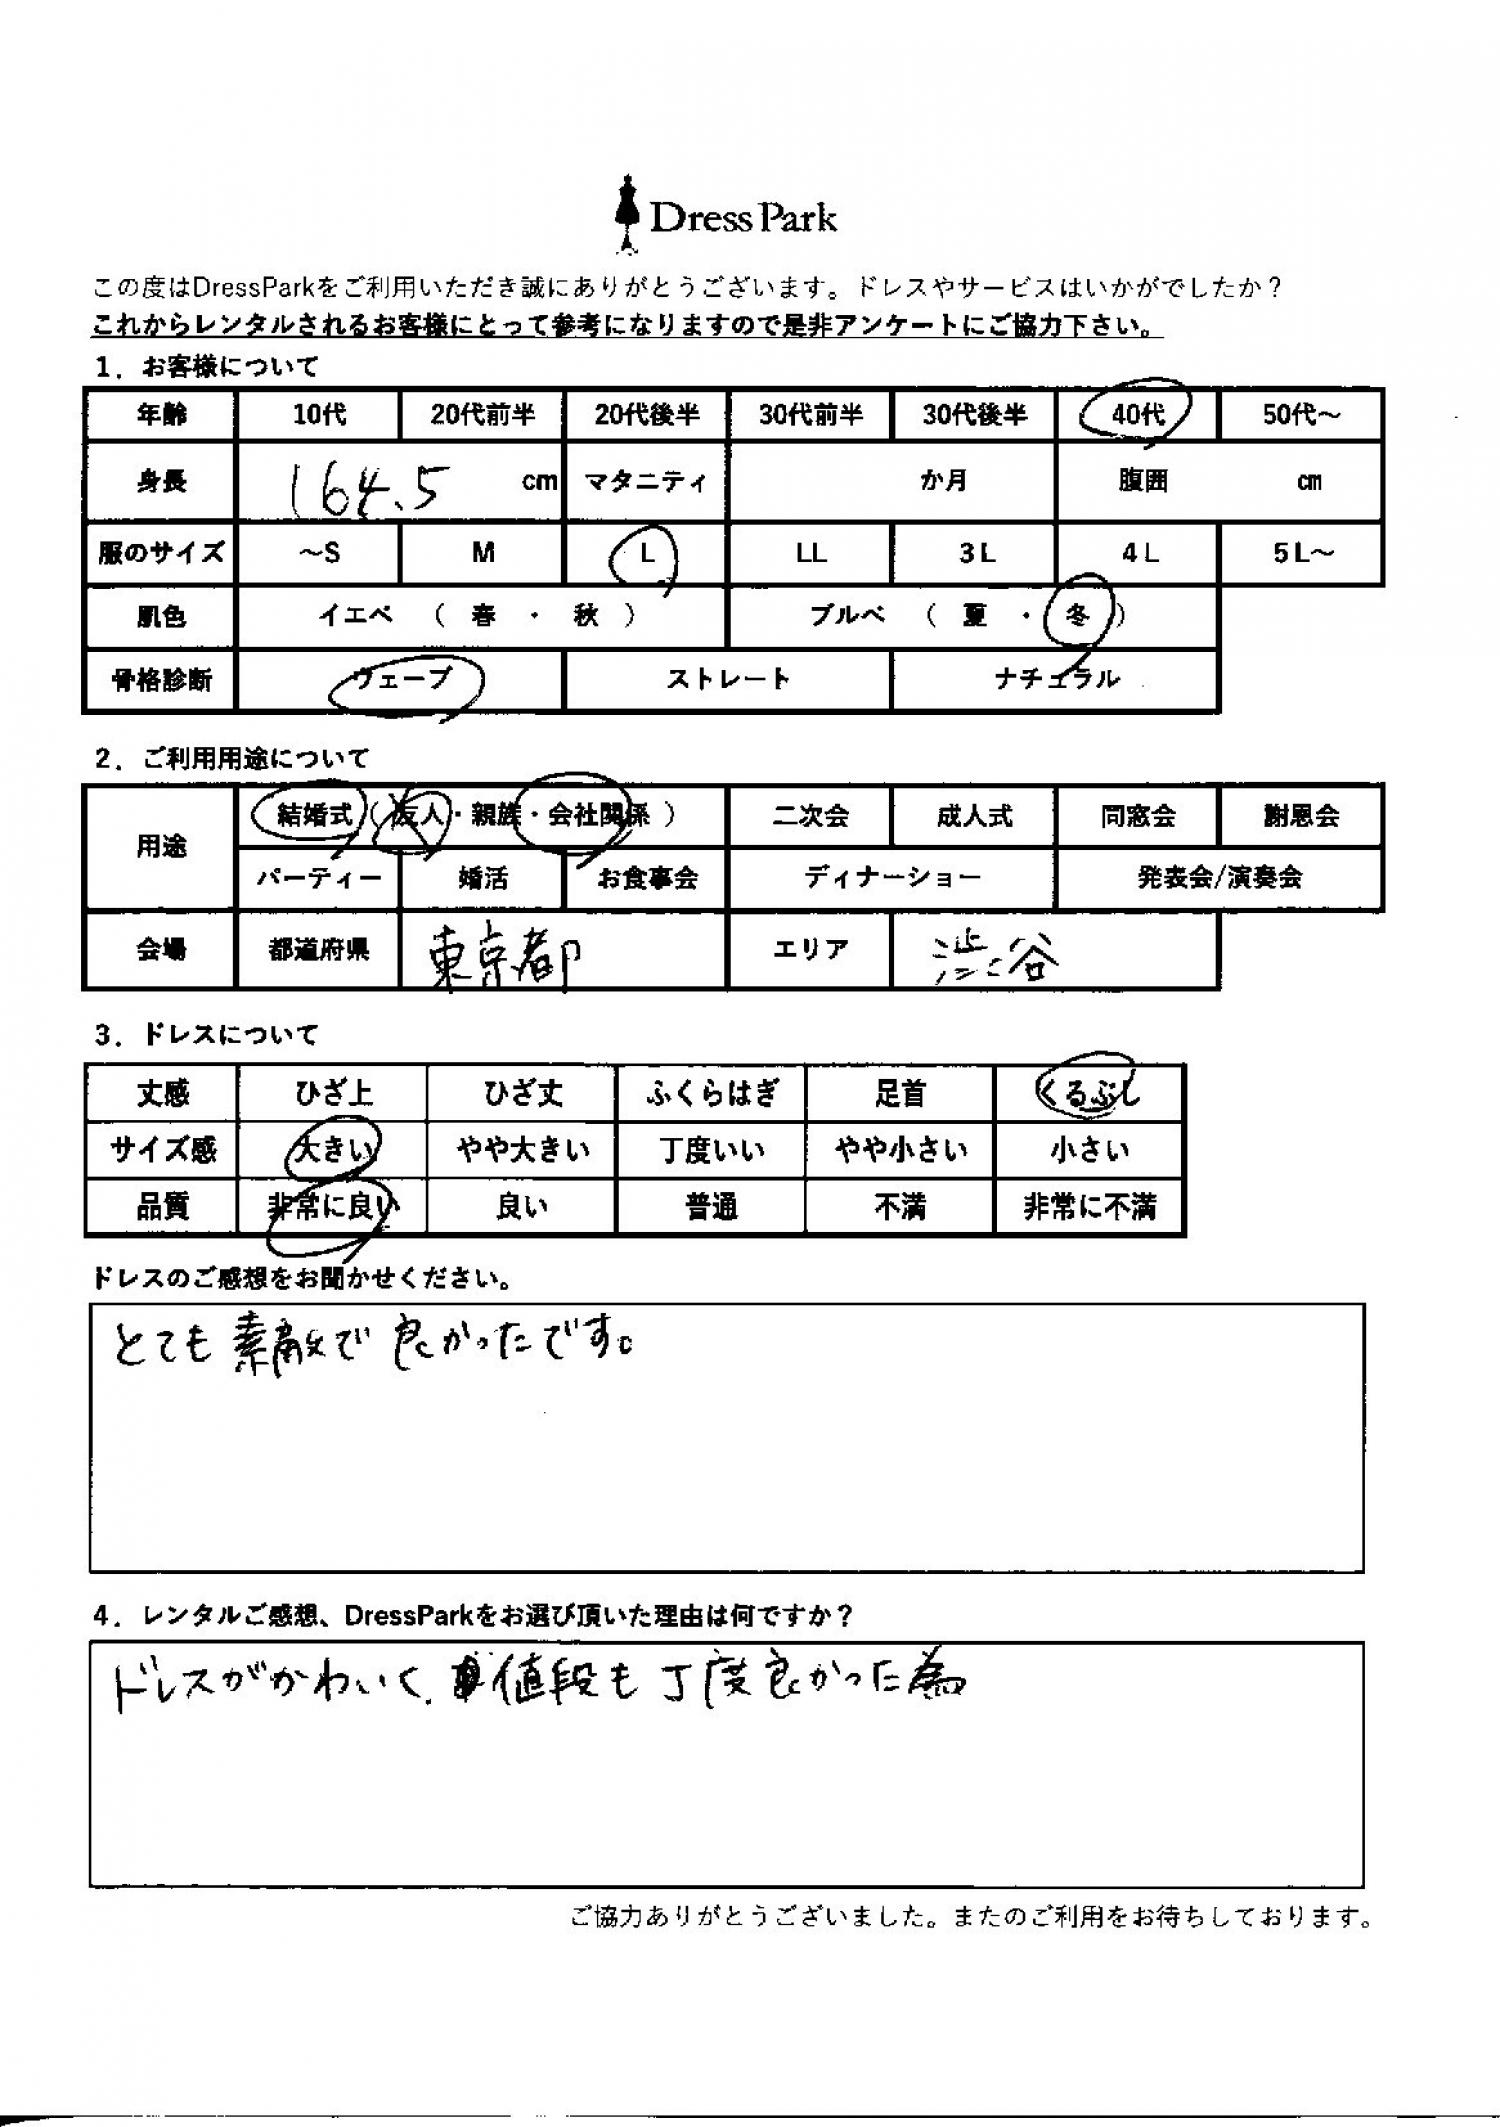 Dress Park
この度はDressParkをご利用いただき誠にありがとうございます。ドレスやサービスはいかがでしたか？
これからレンタルされるお客様にとって参考になりますので是非アンケートにご協力下さい。
1．お客様について
年齢 10代 20代前半 20代後半 30代前半 30代後半 40代 50代～
身長 164.5 cm マタニティ か月 腹囲 cm
服のサイズ ～S M L LL 3L 4L 5L～
肌色 イエベ （ 春 ・ 秋 ） ブルベ （ 夏 ・ 冬 ）
骨格診断 ウェーブ ストレート ナチュラル
2．ご利用用途について
用途 結婚式（友人・親族・会社関係） 二次会 成人式 同窓会 謝恩会
パーティー 婚活 お食事会 ディナーショー 発表会/演奏会
会場 都道府県 東京都 エリア 渋谷
3．ドレスについて
丈感 ひざ上 ひざ丈 ふくらはぎ 足首 くるぶし
サイズ感 大きい やや大きい 丁度いい やや小さい 小さい
品質 非常に良い 良い 普通 不満 非常に不満
ドレスのご感想をお聞かせください。
とても素敵で良かったです。
4．レンタルご感想、DressParkをお選び頂いた理由は何ですか？
ドレスがかわいく、値段も丁度良かった為
ご協力ありがとうございました。またのご利用をお待ちしております。